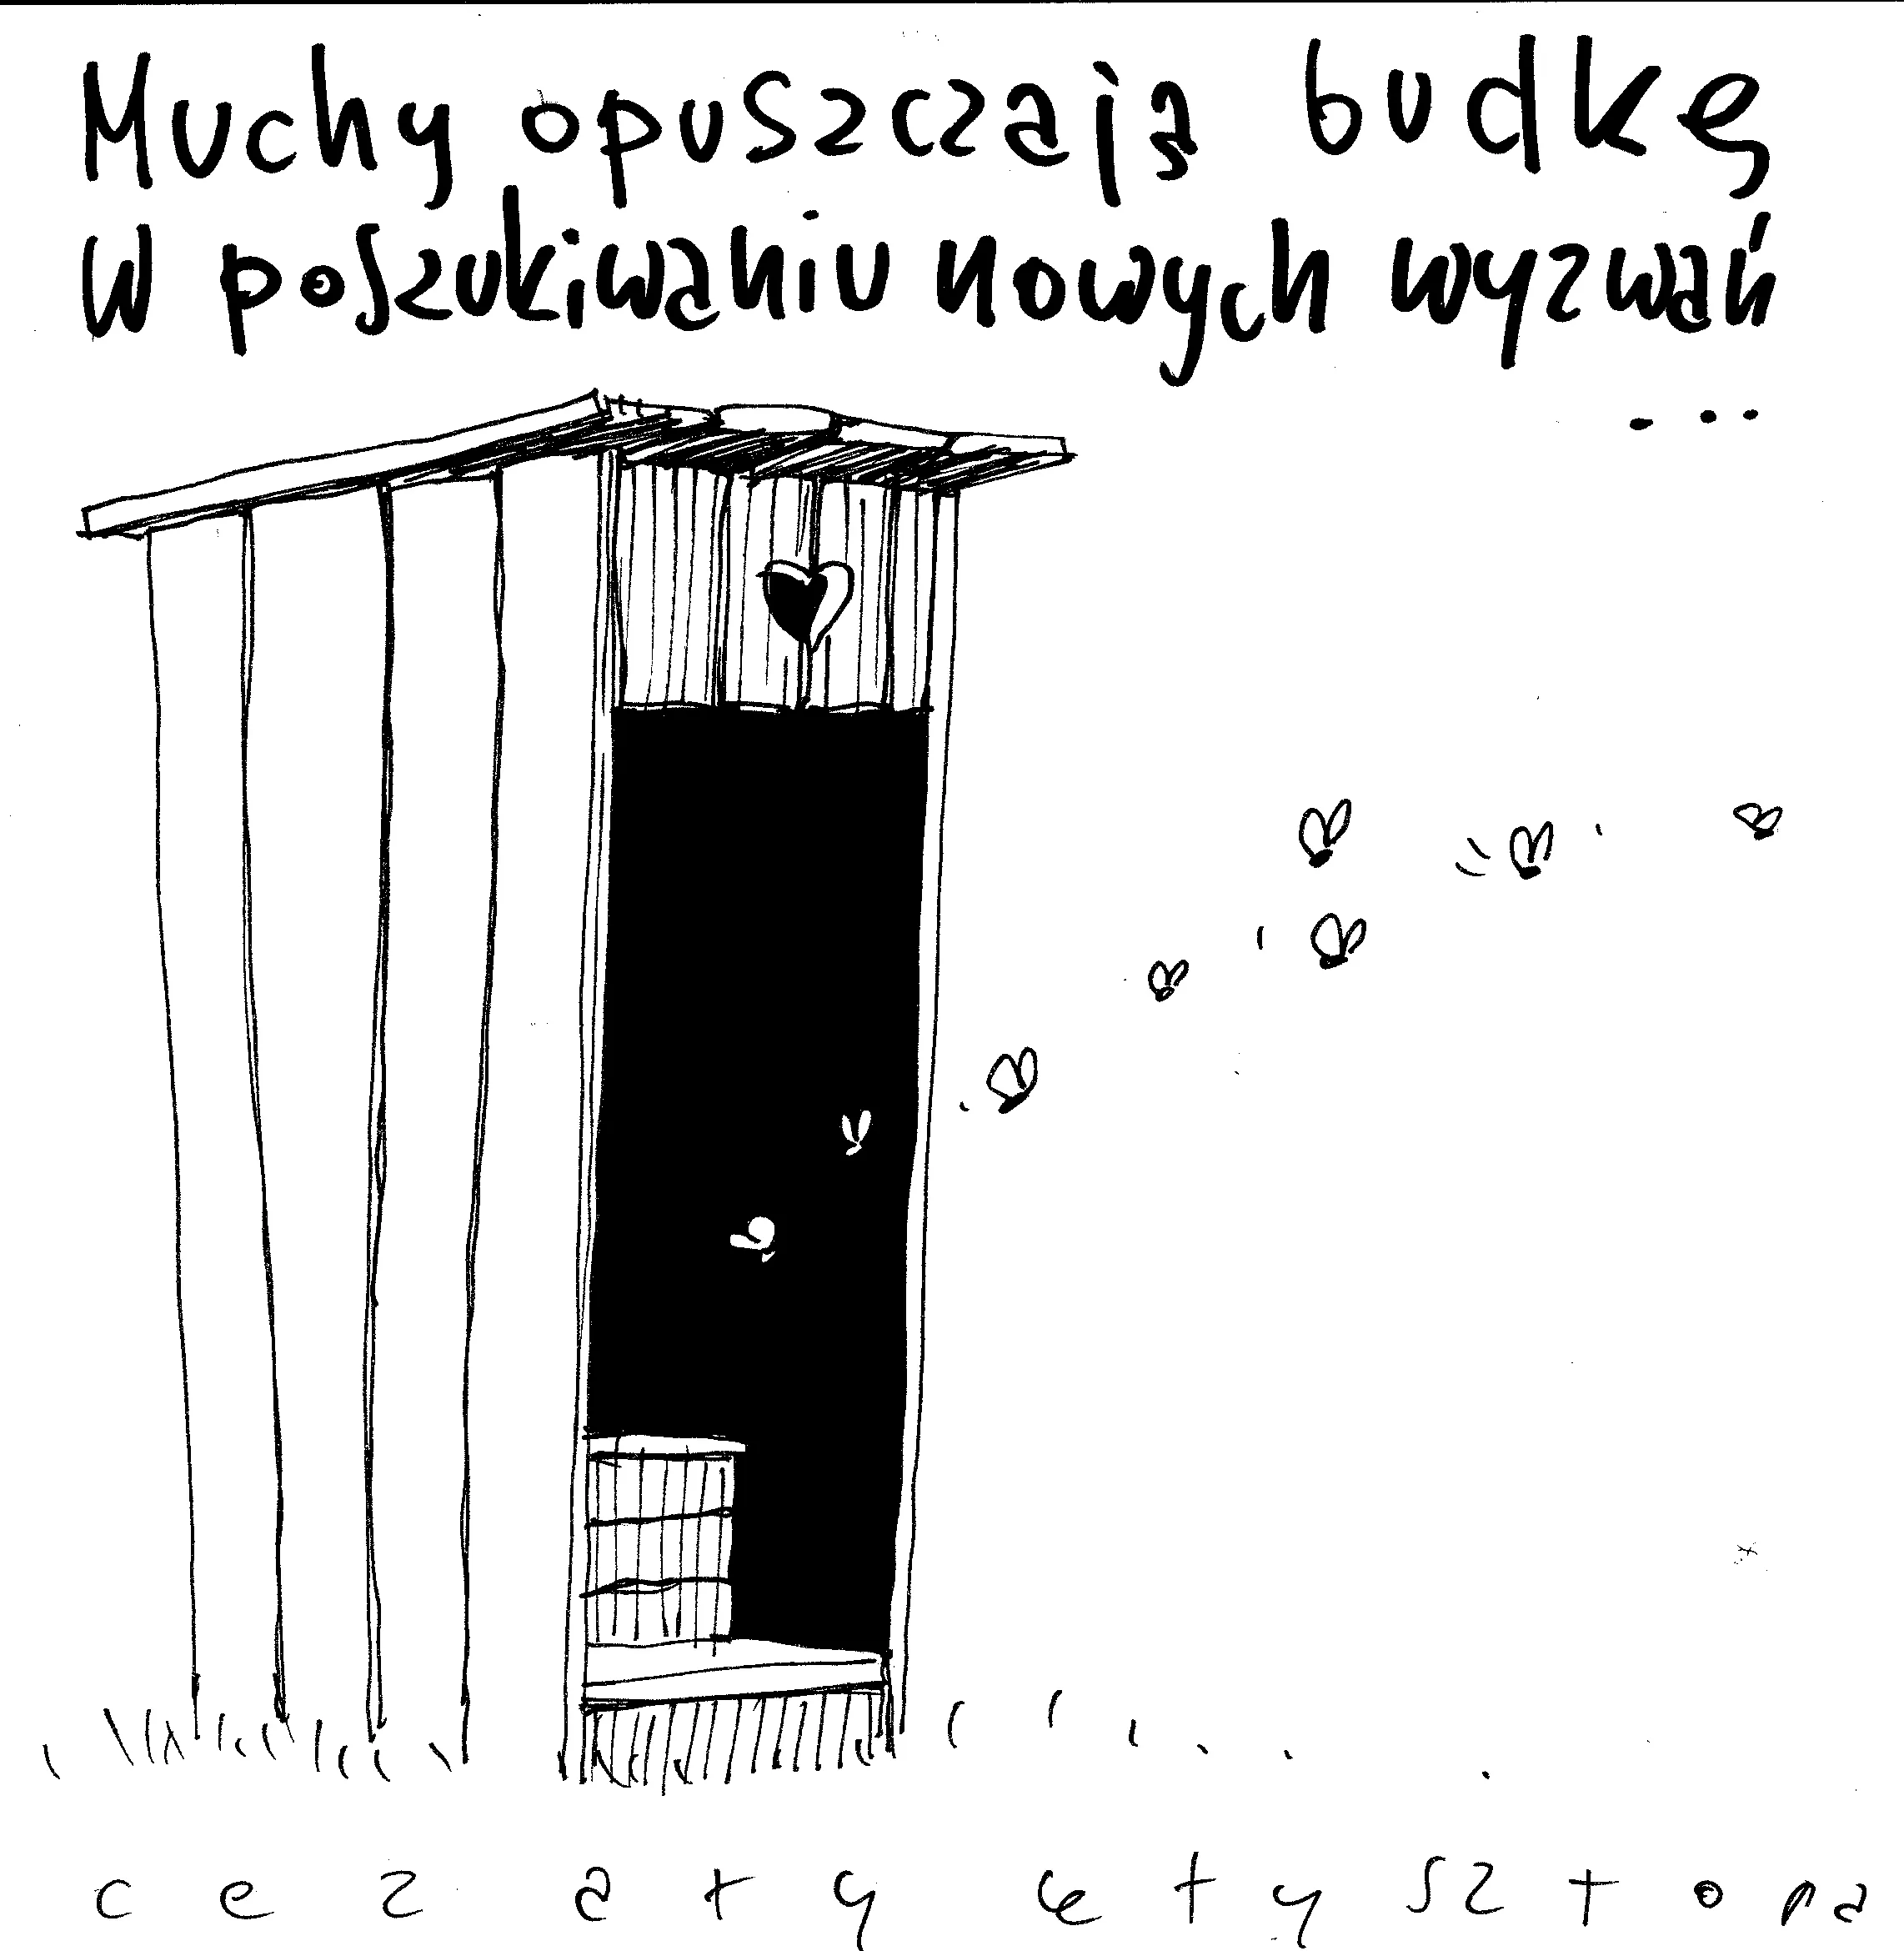 Muchy opuszczają budkę
w poszukiwaniu nowych wyzwań
...
cezary krysztopa